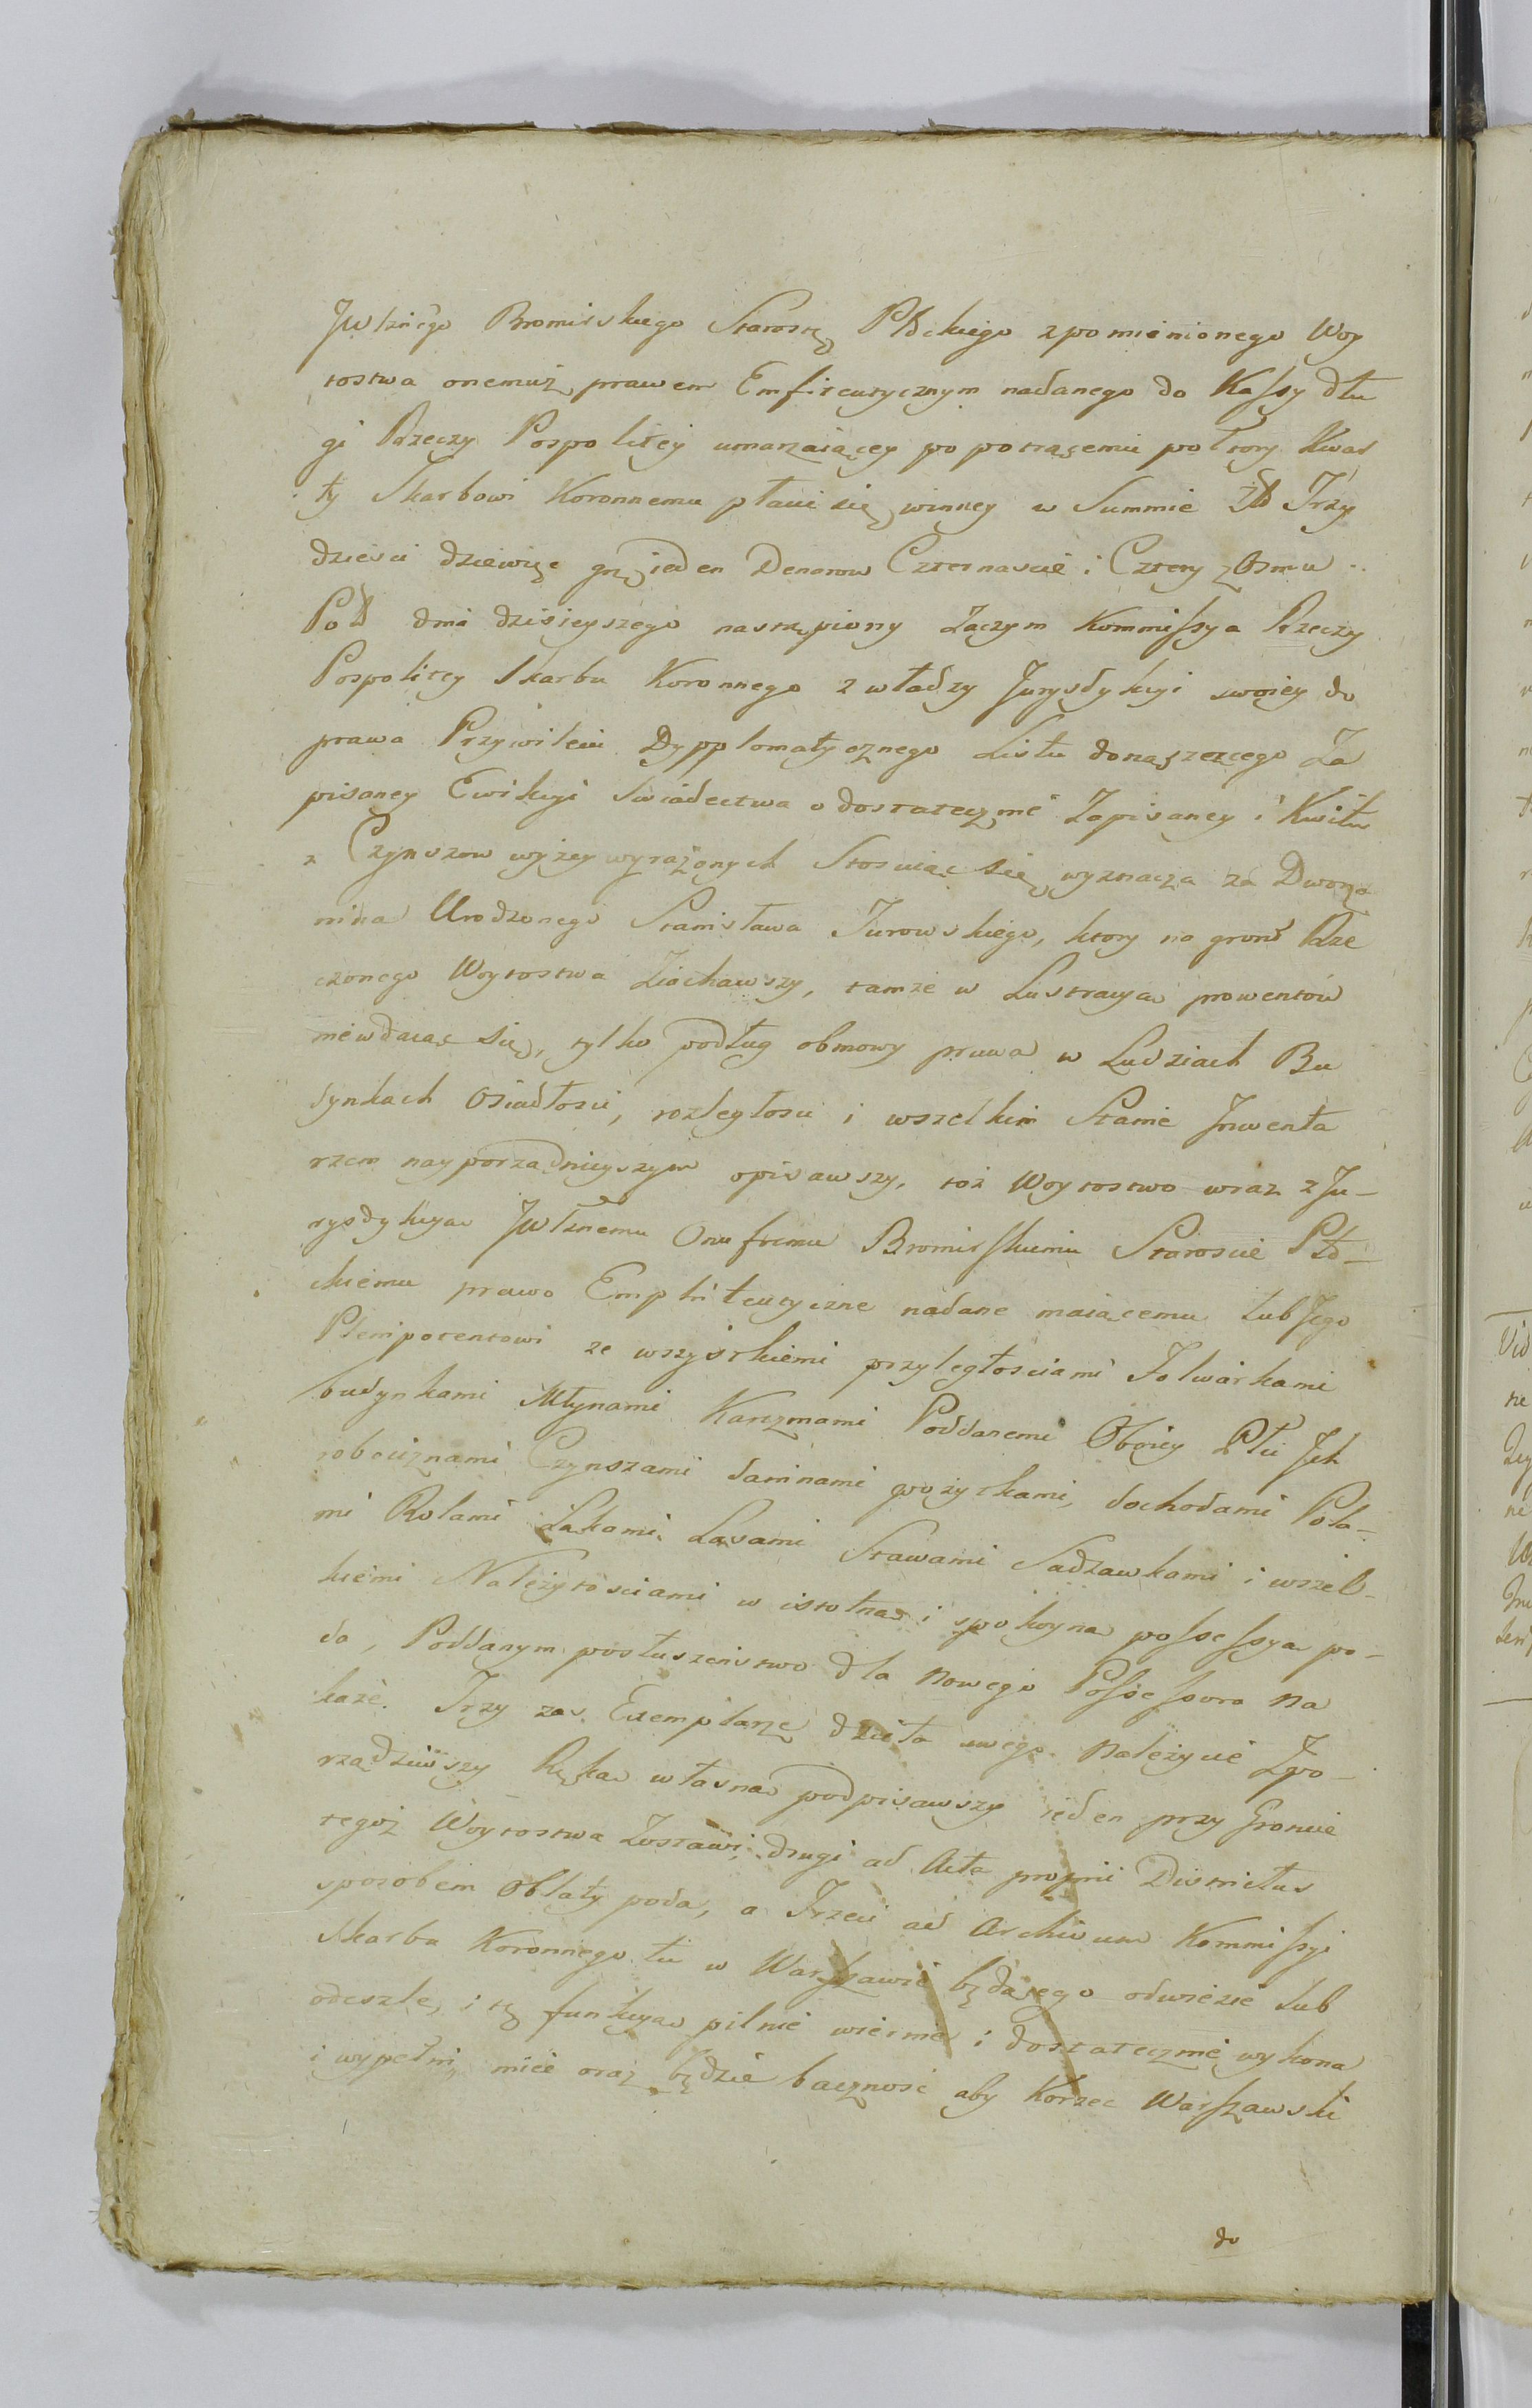 JWłnego Bromirskiego Starostę Płckiego z pomienionego Woy
tostwa onemuż prawem Emfiteutycznym nadanego do Kassy dłu
gi Rzeczy Pospolitey umarzaiącey po potrąceniu połtory Kwar
ty Skarbowi Koronnemu płacić się winney w Summie Zł Trzy
dzieści dziewięć gr ieden Denarow Czternascie i Cztery z Osmu
Pod dnia dzisieyszego nastąpiony Zaczym Kommissya Rzeczy
Pospolitey Skarbu Koronnego z władzy Jurysdykcyi swoiey do
prawa Przywileiu Dypplomatycznego Listu donaszercego Za
pisaney Ewikcyi swiadectwa o dostatecznie Zapisaney i Kwitu
z Czynszow wyżey wyrażonych Stosuiąc się wyznacza za Dworza
nina Urodzonego Stanisława Turowskiego, ktory na gront Rze
czonego Woytostwa Ziachawszy, tamże w Lustracya prowentow
niewdaiąc się, tylko podług obmowy prawa w Ludziach Bu
dynkach Osiadłosci, rozległosci i wszelkim Stanie Inwenta
rzem nayporządnieyszym opisawszy, toż Woytostwo wraz z Ju-
rysdykcya JWłnemu Onufremu Bromirskiemu Staroscie Płó-
ckiemu prawo Emphiteutyczne nadane maiącemu lub Jego
Plenipotentowi ze wszystkiemi przyległosciami Folwarkami
budynkami Młynami Karczmami Poddanemi Oboiey Płci Ich
robociznami Czynszami daninami pożytkami, dochodami Pola-
mi Rolami Łąkami Lasami Stawami Sadzawkami i wszel-
kiemi Należytosciami w istotna i spokoyna possessya po-
da, Poddanym posłuszeństwo dla nowego Possessora na
każe. Trzy zas Exemplarze dzieła swego należycie Zpo-
rządziwszy Ręka własna podpisawszy ieden przy Groncie
tegoż Woytostwa Zostawi, drugi ad Acta proprii Districtus
sposobem Oblaty poda, a Trzeci ad Archivum Kommissyi
Skarbu Koronnego tu w Warszawie będącego odwiezie lub
odeszle, i tę funkcya pilnie wiernie i dostatecznie wykona
i wypełni, mieć oraz będzie bacznosć aby Korzec Warszawski
do